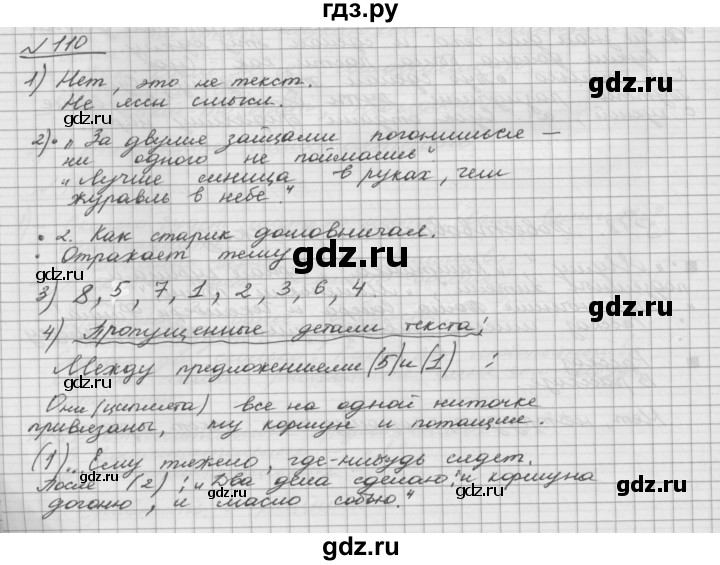 гдз.ру
№ 110
1) Нет, это не текст.
Не ясн смысл.
2) • „За двумя зайцами погонишься —
ни одного не поймаешь"
„Лучше синица в руках, чем
журавль в небе."
• 2. Как старик домовничал.
• Отражает тему
3) 8, 5, 7, 1, 2, 3, 6, 4.
4) Пропущенные детали текста:
Между предложениями (5) и (1) :
Они (цыплята) все на одной ниточке
привязаны, ту коршун и потащил.
(1)... Ему тяжело, где-нибудь сядет.
После (2) : „Два дела сделаю: и коршуна
догоню, и масло собью."
gdz.ru
gdz.ru
gdz.ru
gdz.ru
gdz.ru
gdz.ru
gdz.ru
gdz.ru
gdz.ru
gdz.ru